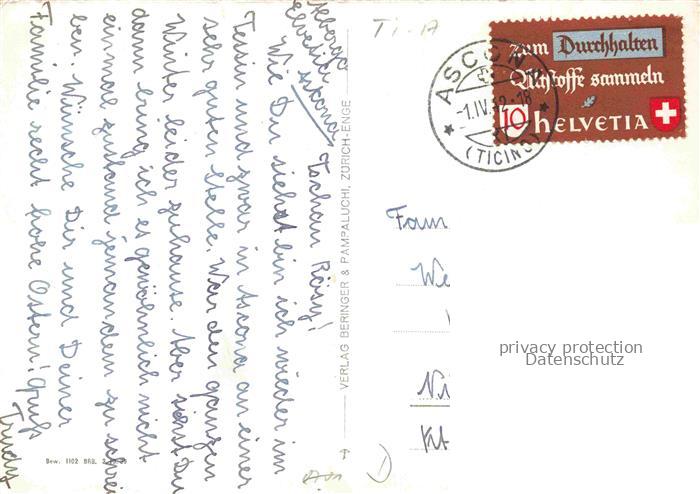 Albergo
Elvetia Ascona
Tschau Rösy!
Wie Du siehst bin ich wieder im
Tessin und zwar in Ascona an einer
sehr guten Stelle. War den ganzen
Winter leider zuhause. Aber sonst Du
dann bring ich es gewöhnlich nicht
einmal zustand jemandem zu schrei
ben. Wünsche Dir und Deiner
Familie recht frohe Ostern! Gruß
Trudy
Bew. 1102 BRB.
VERLAG BERINGER & PAMPALUCHI, ZÜRICH-ENGE
Ti-A
ASCONA
-1.IV.42-18
(TICINO)
Zum Durchhalten
Altstoffe sammeln
10 HELVETIA
Fam
We
Ni
Kt
privacy protection
Datenschutz